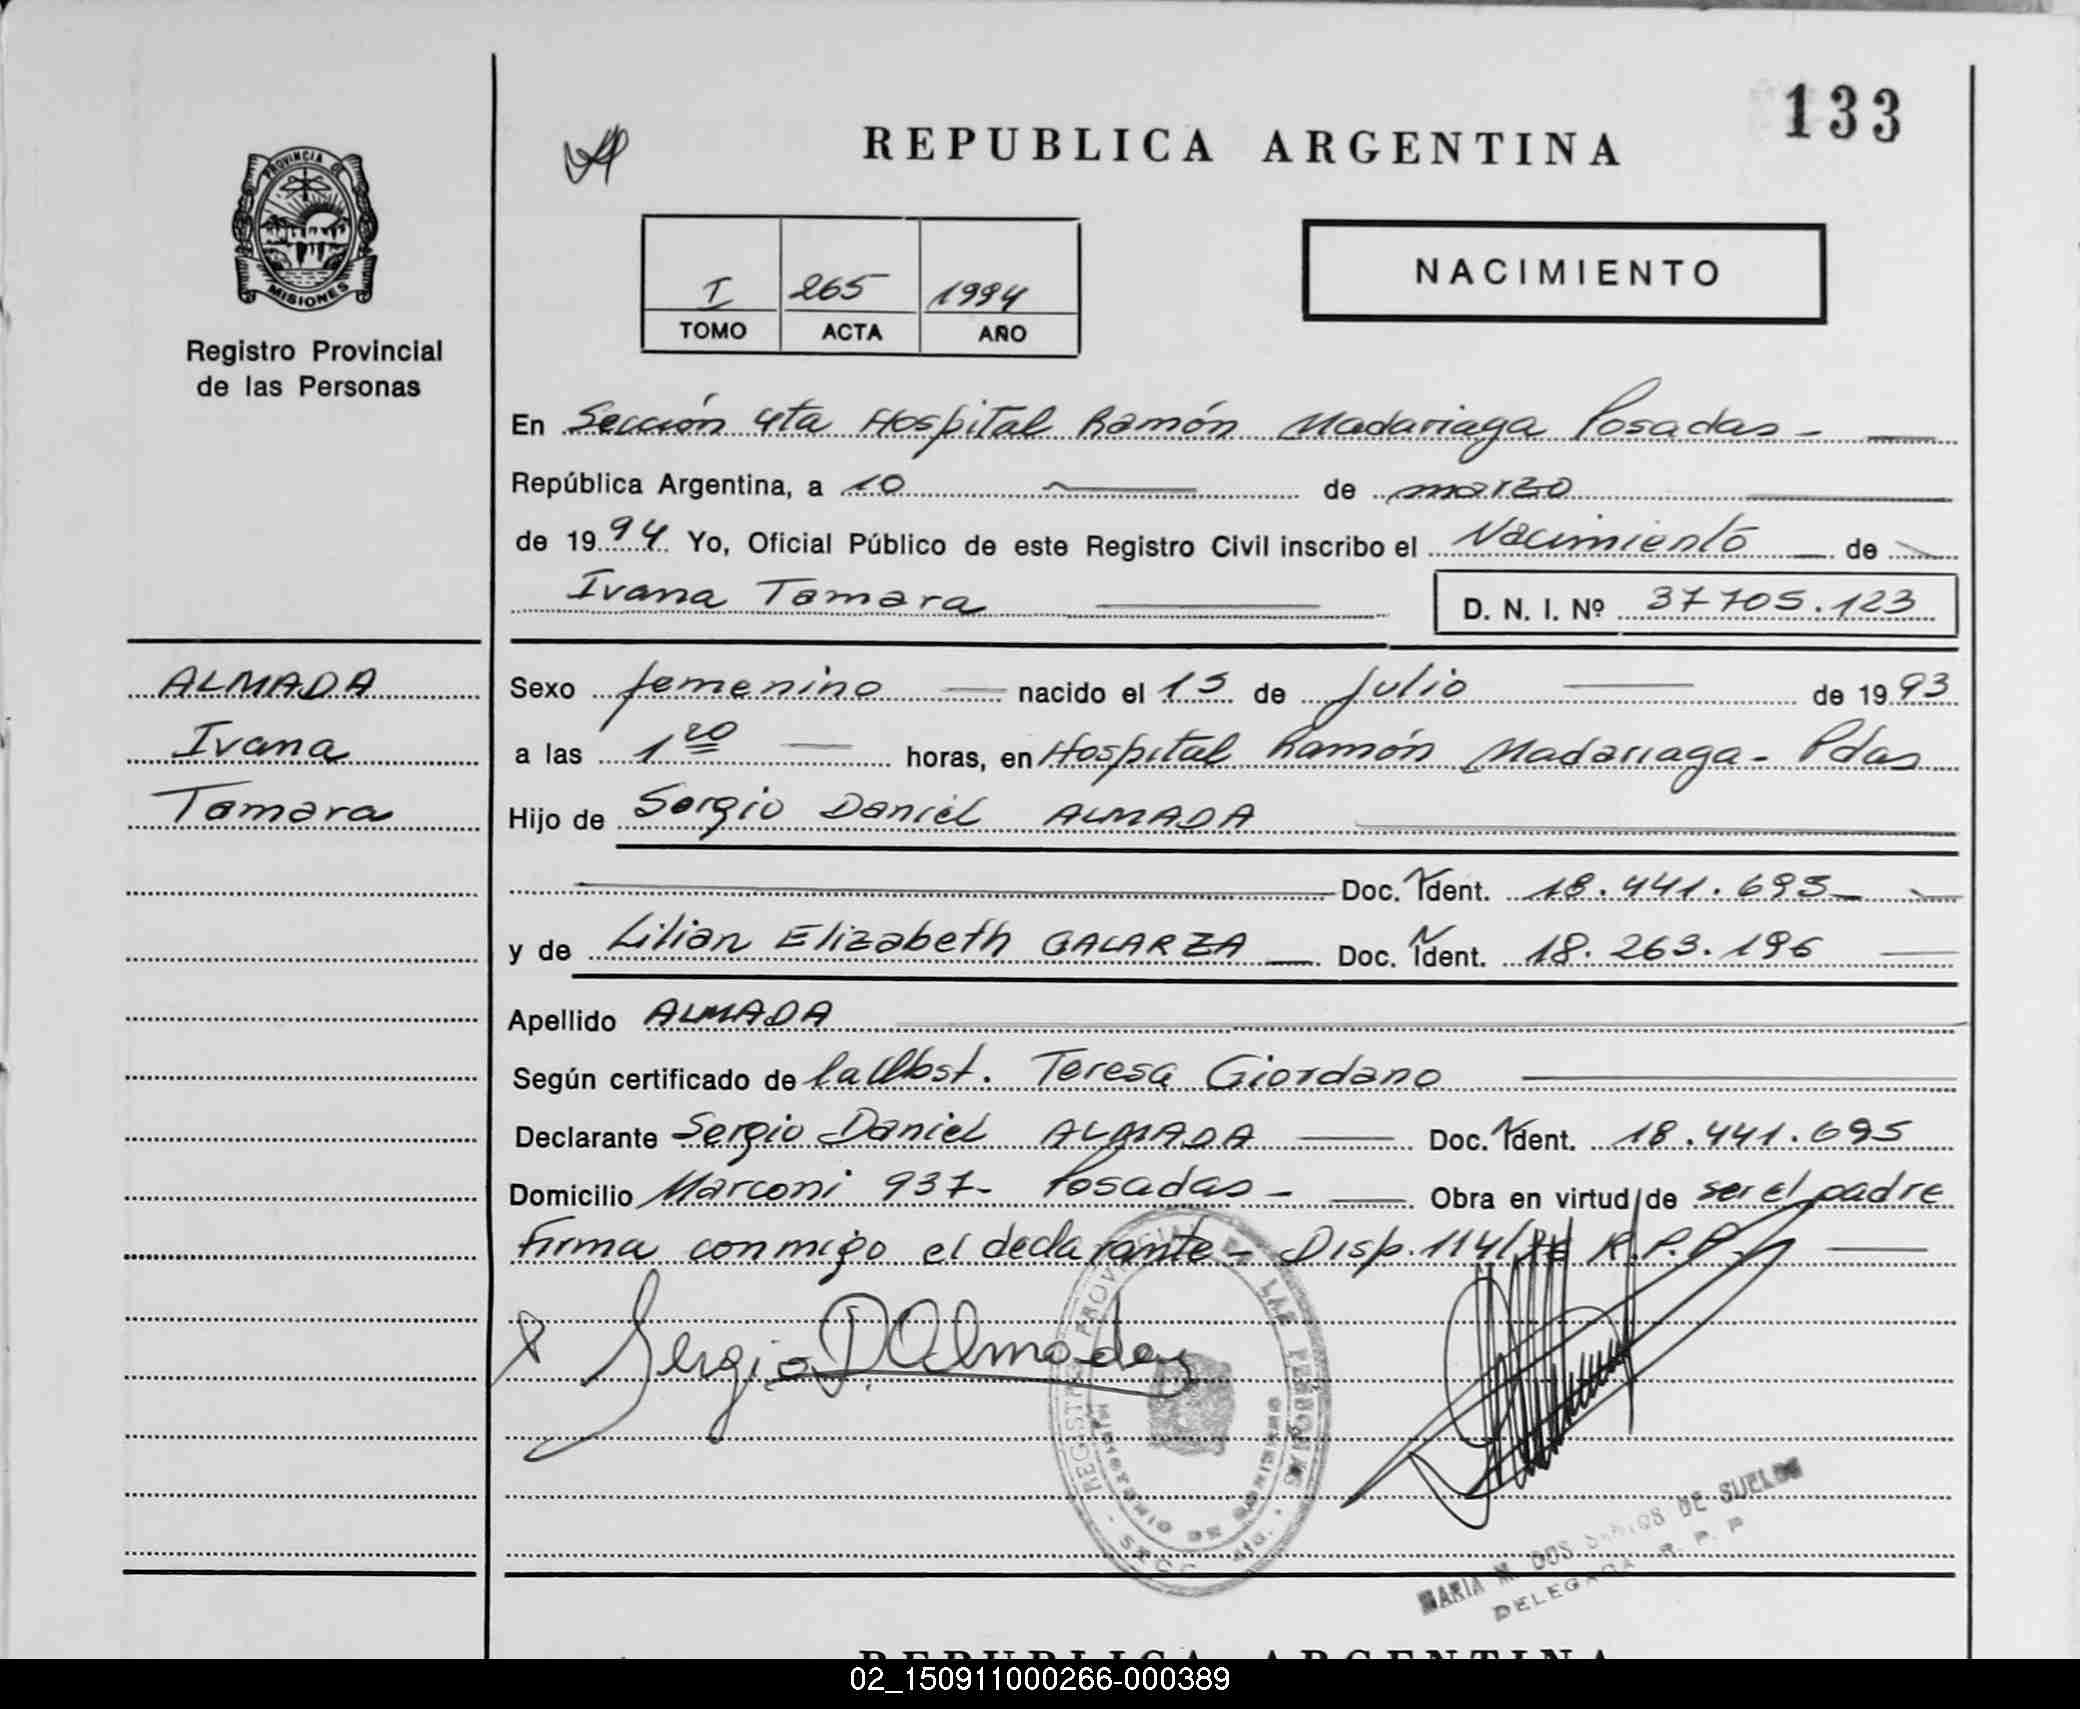 133
REPUBLICA ARGENTINA
PROVINCIA DE
MISIONES
Registro Provincial
de las Personas
I 265 1994
TOMO ACTA AÑO
NACIMIENTO
En Sección 4ta Hospital Ramón Madariaga Posadas -
República Argentina, a 10 de marzo
de 1994 Yo, Oficial Público de este Registro Civil inscribo el Nacimiento de
Ivana Tamara D. N. I. Nº 37705.123
ALMADA
Ivana
Tamara
Sexo femenino nacido el 15 de Julio de 1993
a las 1 20 horas, en Hospital Ramón Madariaga - Pdas
Hijo de Sergio Daniel ALMADA
Doc. Ident. 18.441.695
y de Lilian Elizabeth GALARZA Doc. Ident. 18.263.196
Apellido ALMADA
Según certificado de la Obst. Teresa Giordano
Declarante Sergio Daniel ALMADA Doc. Ident. 18.441.695
Domicilio Marconi 937 - Posadas - Obra en virtud de ser el padre
Firma conmigo el declarante - Disp. 114/ R.P.P.
Sergio D. Almada
REGISTRO PROVINCIAL DE LAS PERSONAS
MARIA M. DOS SANTOS DE SUELDO
DELEGADA R. P. P
REPUBLICA ARGENTINA
02_150911000266-000389